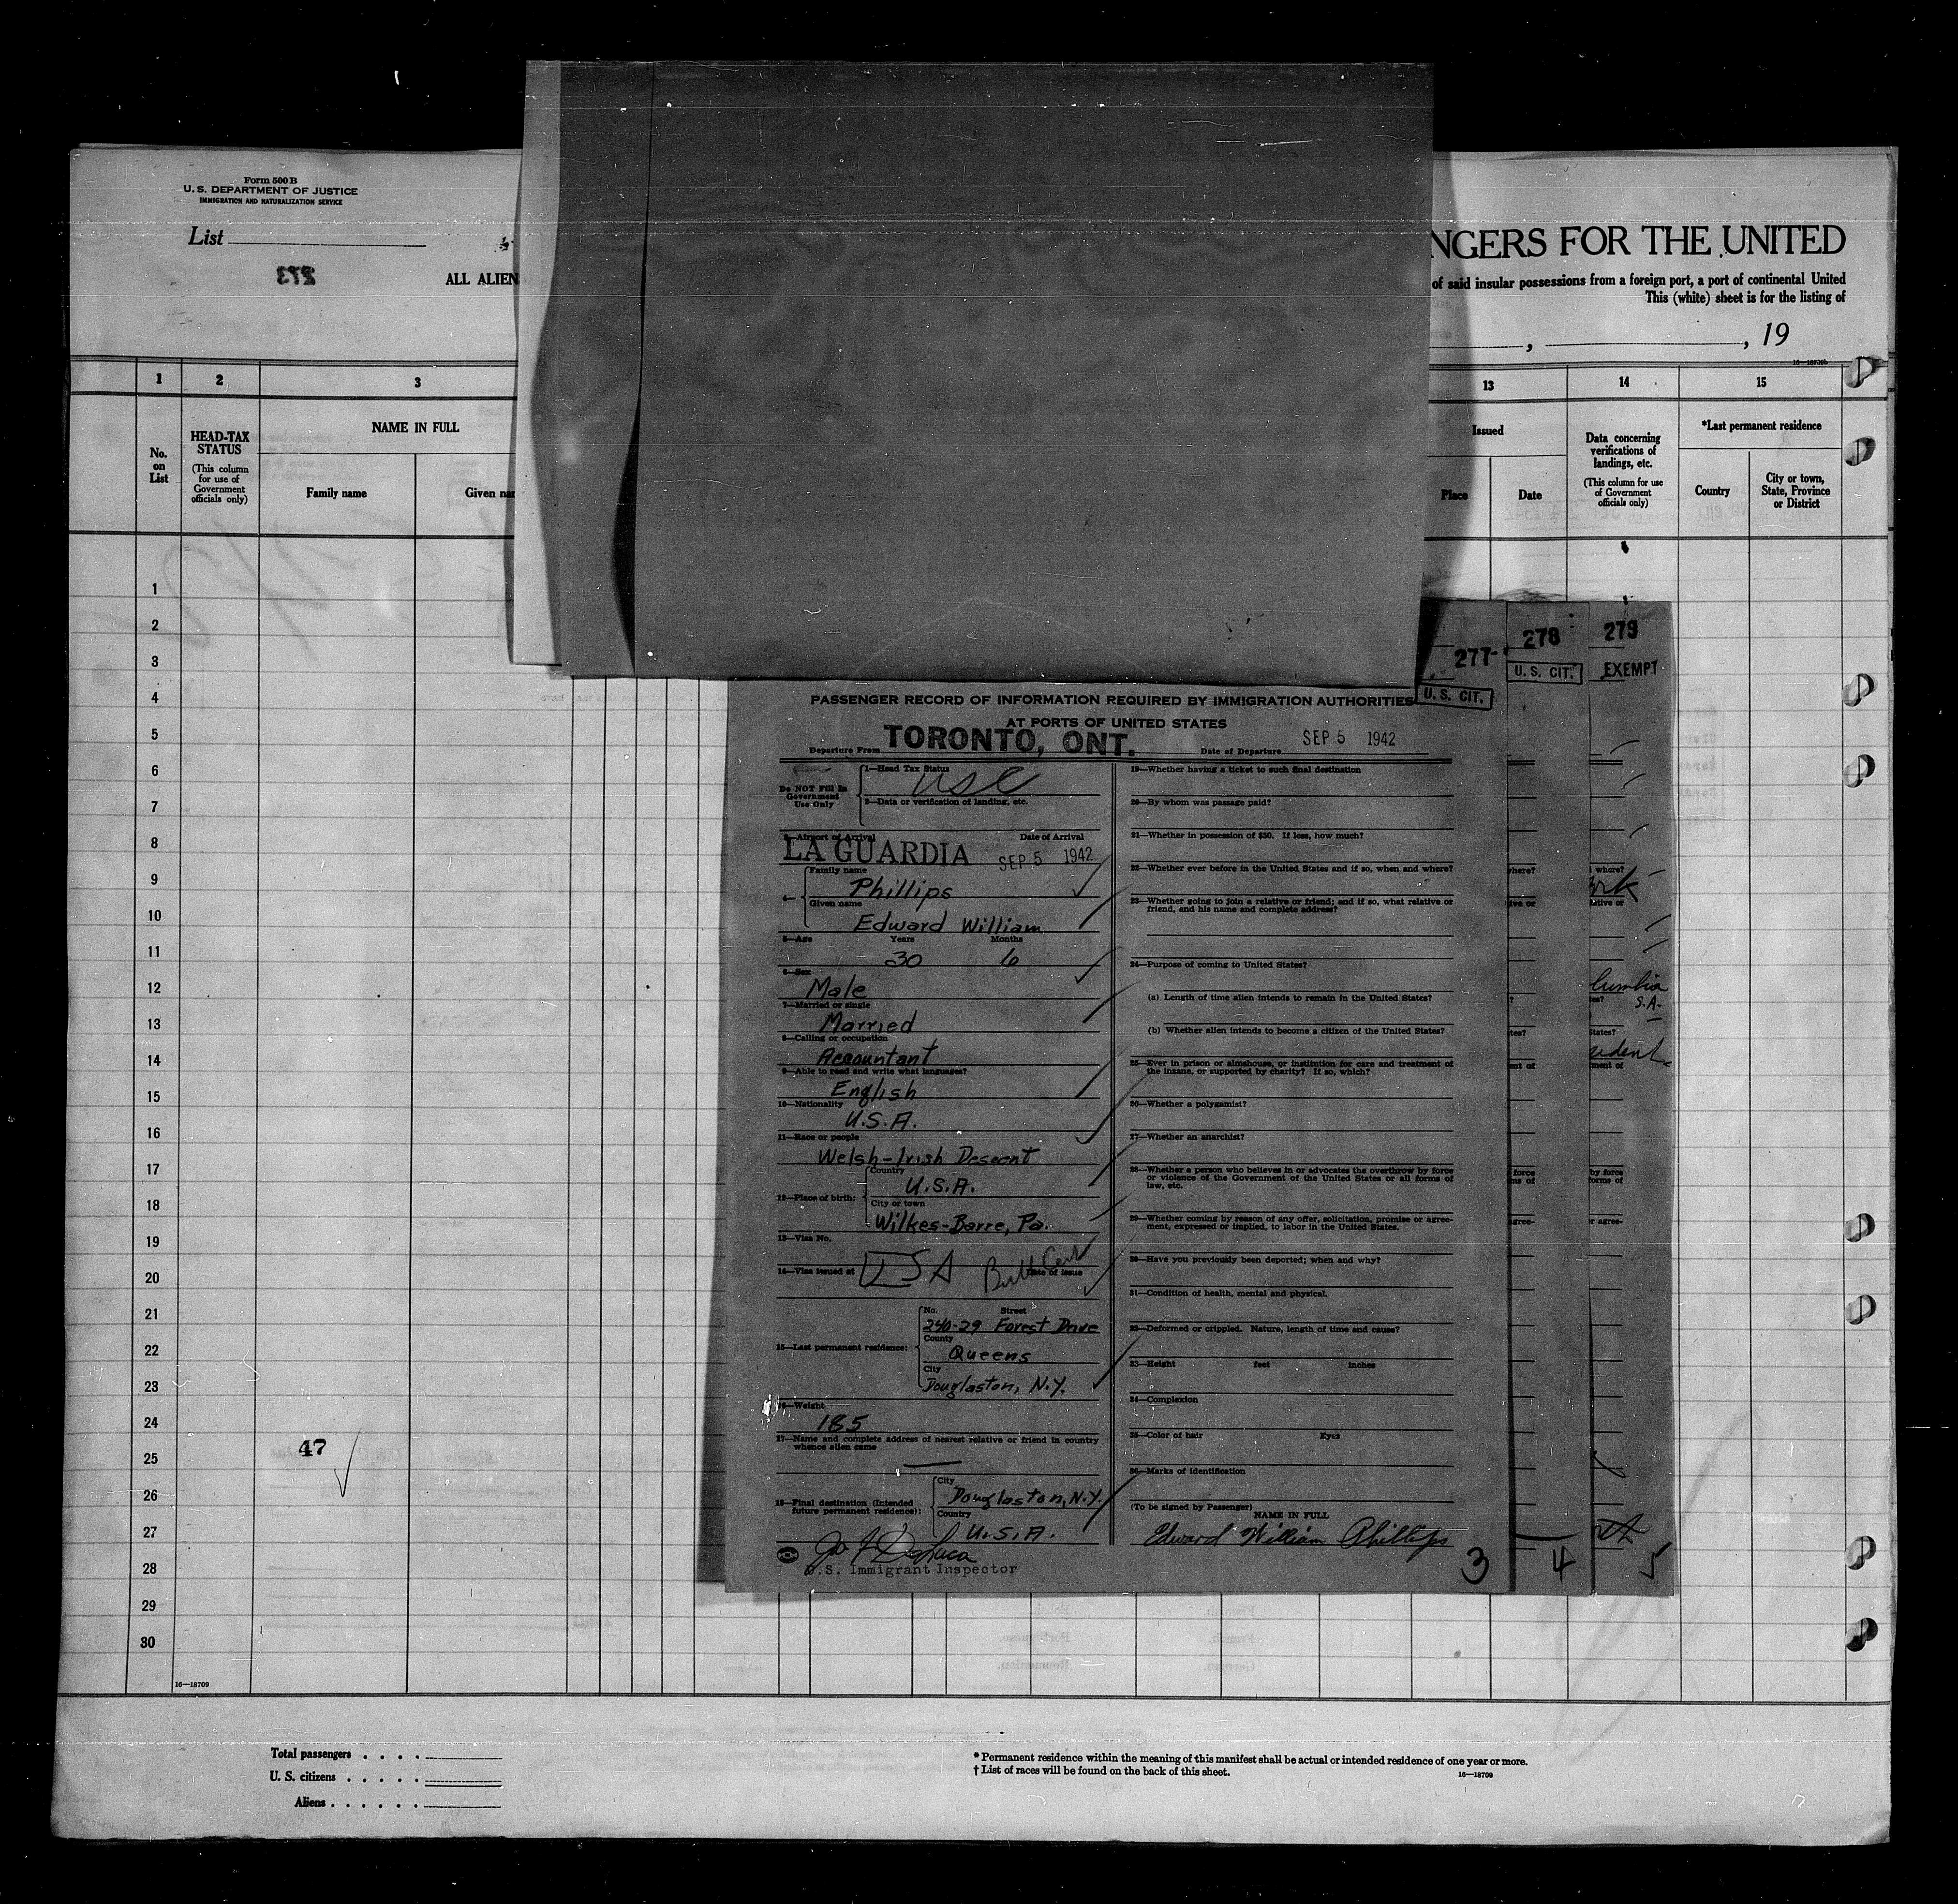 Form 500 B
U. S. DEPARTMENT OF JUSTICE
IMMIGRATION AND NATURALIZATION SERVICE
List
273
ALL ALIEN
NGERS FOR THE UNITED
of said insular possessions from a foreign port, a port of continental United
This (white) sheet is for the listing of
, , 19
1 2 3 13 14 15
No. on List
HEAD-TAX STATUS
(This column for use of Government officials only)
NAME IN FULL
Family name
Given nam
Issued
Place
Date
Data concerning verifications of landings, etc.
(This column for use of Government officials only)
*Last permanent residence
Country
City or town, State, Province or District
1
2
3
4
5
6
7
8
9
10
11
12
13
14
15
16
17
18
19
20
21
22
23
24
25
26
27
28
29
30
47
277
U. S. CIT.
278
U. S. CIT.
279
EXEMPT
PASSENGER RECORD OF INFORMATION REQUIRED BY IMMIGRATION AUTHORITIES
AT PORTS OF UNITED STATES
Departure From TORONTO, ONT. Date of Departure SEP 5 1942
Do NOT Fill In
Government
Use Only
1—Head Tax Status
USC
2—Data or verification of landing, etc.
3—Airport of Arrival Date of Arrival
LA GUARDIA SEP 5 1942
4—
Family name
Phillips
Given name
Edward William
5—Age Years Months
30 6
6—Sex
Male
7—Married or single
Married
8—Calling or occupation
Accountant
9—Able to read and write what languages?
English
10—Nationality
U.S.A.
11—Race or people
Welsh-Irish Descent
12—Place of birth:
Country
U.S.A.
City or town
Wilkes-Barre, Pa.
13—Visa No.
14—Visa issued at Date of issue
USA
15—Last permanent residence:
No. Street
240-29 Forest Drive
County
Queens
City
Douglaston, N.Y.
16—Weight
185
17—Name and complete address of nearest relative or friend in country
whence alien came
18—Final destination (Intended
future permanent residence):
City
Douglaston, N.Y.
Country
U.S.A.
U.S. Immigrant Inspector
19—Whether having a ticket to such final destination
20—By whom was passage paid?
21—Whether in possession of $50. If less, how much?
22—Whether ever before in the United States and if so, when and where?
23—Whether going to join a relative or friend; and if so, what relative or
friend, and his name and complete address?
24—Purpose of coming to United States?
(a) Length of time alien intends to remain in the United States?
(b) Whether alien intends to become a citizen of the United States?
25—Ever in prison or almshouse, or institution for care and treatment of
the insane, or supported by charity? If so, which?
26—Whether a polygamist?
27—Whether an anarchist?
28—Whether a person who believes in or advocates the overthrow by force
or violence of the Government of the United States or all forms of
law, etc.
29—Whether coming by reason of any offer, solicitation, promise or agree-
ment, expressed or implied, to labor in the United States.
30—Have you previously been deported; when and why?
31—Condition of health, mental and physical.
32—Deformed or crippled. Nature, length of time and cause?
33—Height feet inches
34—Complexion
35—Color of hair Eyes
36—Marks of identification
(To be signed by Passenger)
NAME IN FULL
Edward William Phillips
3
4
5
where?
lumbia
S.A.
16—18709
Total passengers . . . .
U. S. citizens . . . . .
Aliens . . . . . .
* Permanent residence within the meaning of this manifest shall be actual or intended residence of one year or more.
† List of races will be found on the back of this sheet.
16—18709